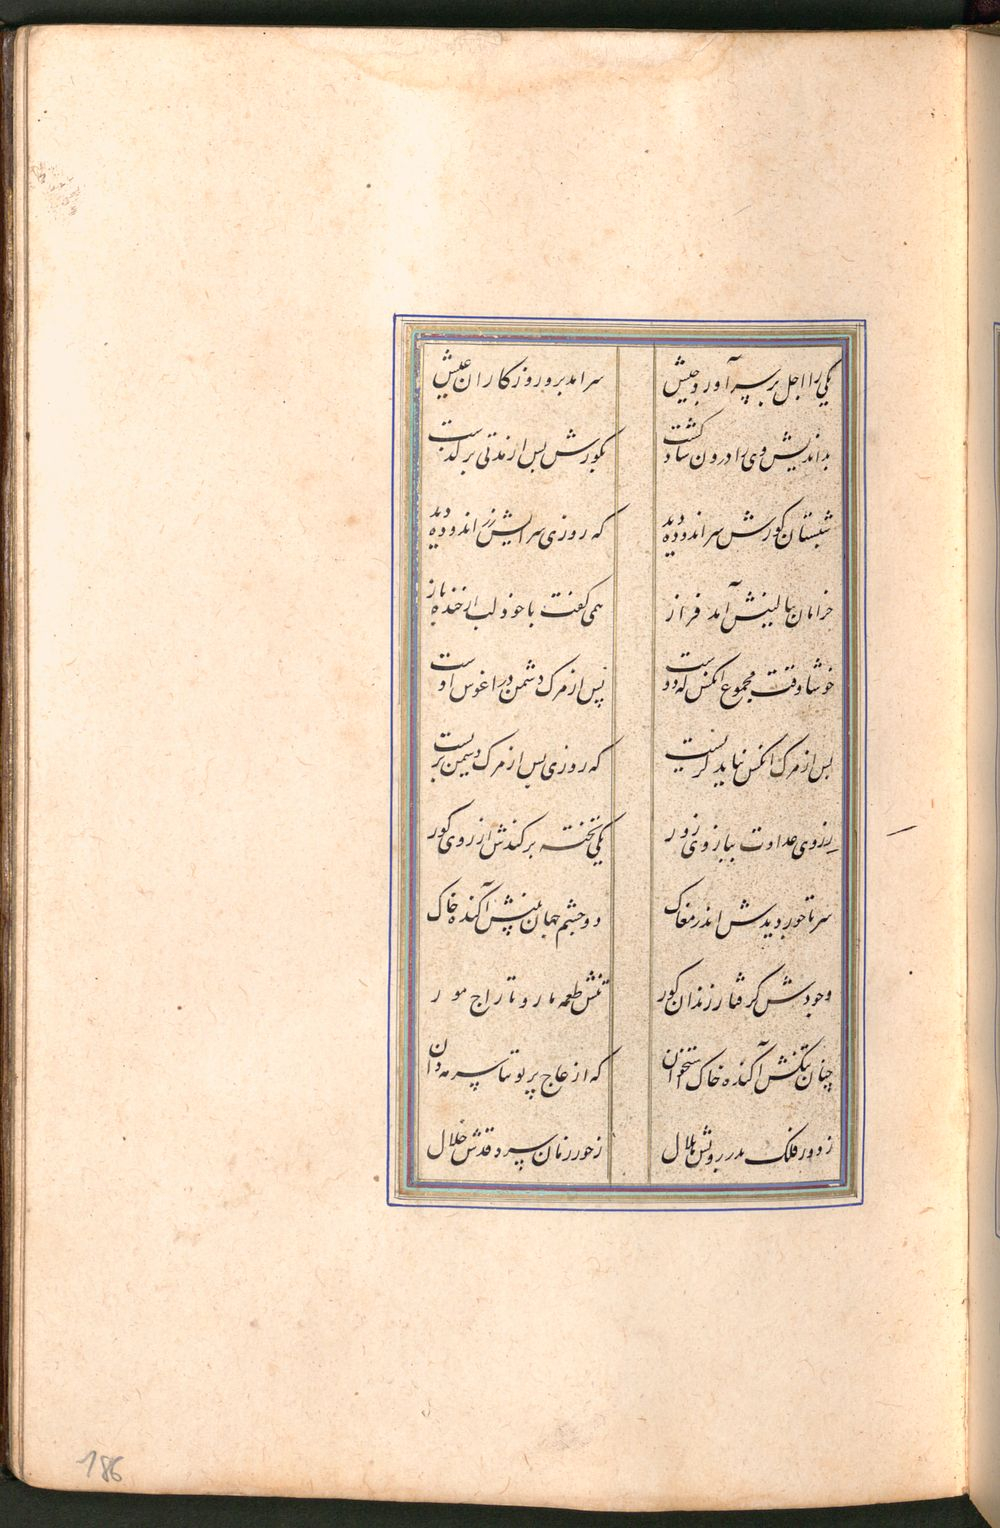 یکی را اجل بر سپر آورد جیش سرآمد برو روزگاران عیش
بداندیش وی را درون شاد گشت بگورش پس از مدتی برگذشت
شبستان گورش سراندوده دید که روزی سرایش زراندوده دید
خرامان ببالینش آمد فراز همی گفت با خود لب از خنده باز
خوشا وقت مجموع آنکس که دوست پس از مرگ دشمن در آغوش اوست
پس از مرگ آنکس نباید گریست که روزی پس از مرگ دشمن بزیست
ز روی عداوت ببازوی زور یکی تخته برکندش از روی گور
سر تاجور دیدش اندر مغاک دو چشم جهان بینش آکنده خاک
وجودش گرفتار زندان گور تنش طعمه مار و تاراج مور
چنان تنگش آکنده خاک استخوان که از عاج پر توتیا سرمه دان
ز دور فلک بدر رویش هلال ز جور زمان سرو قدش خلال
186